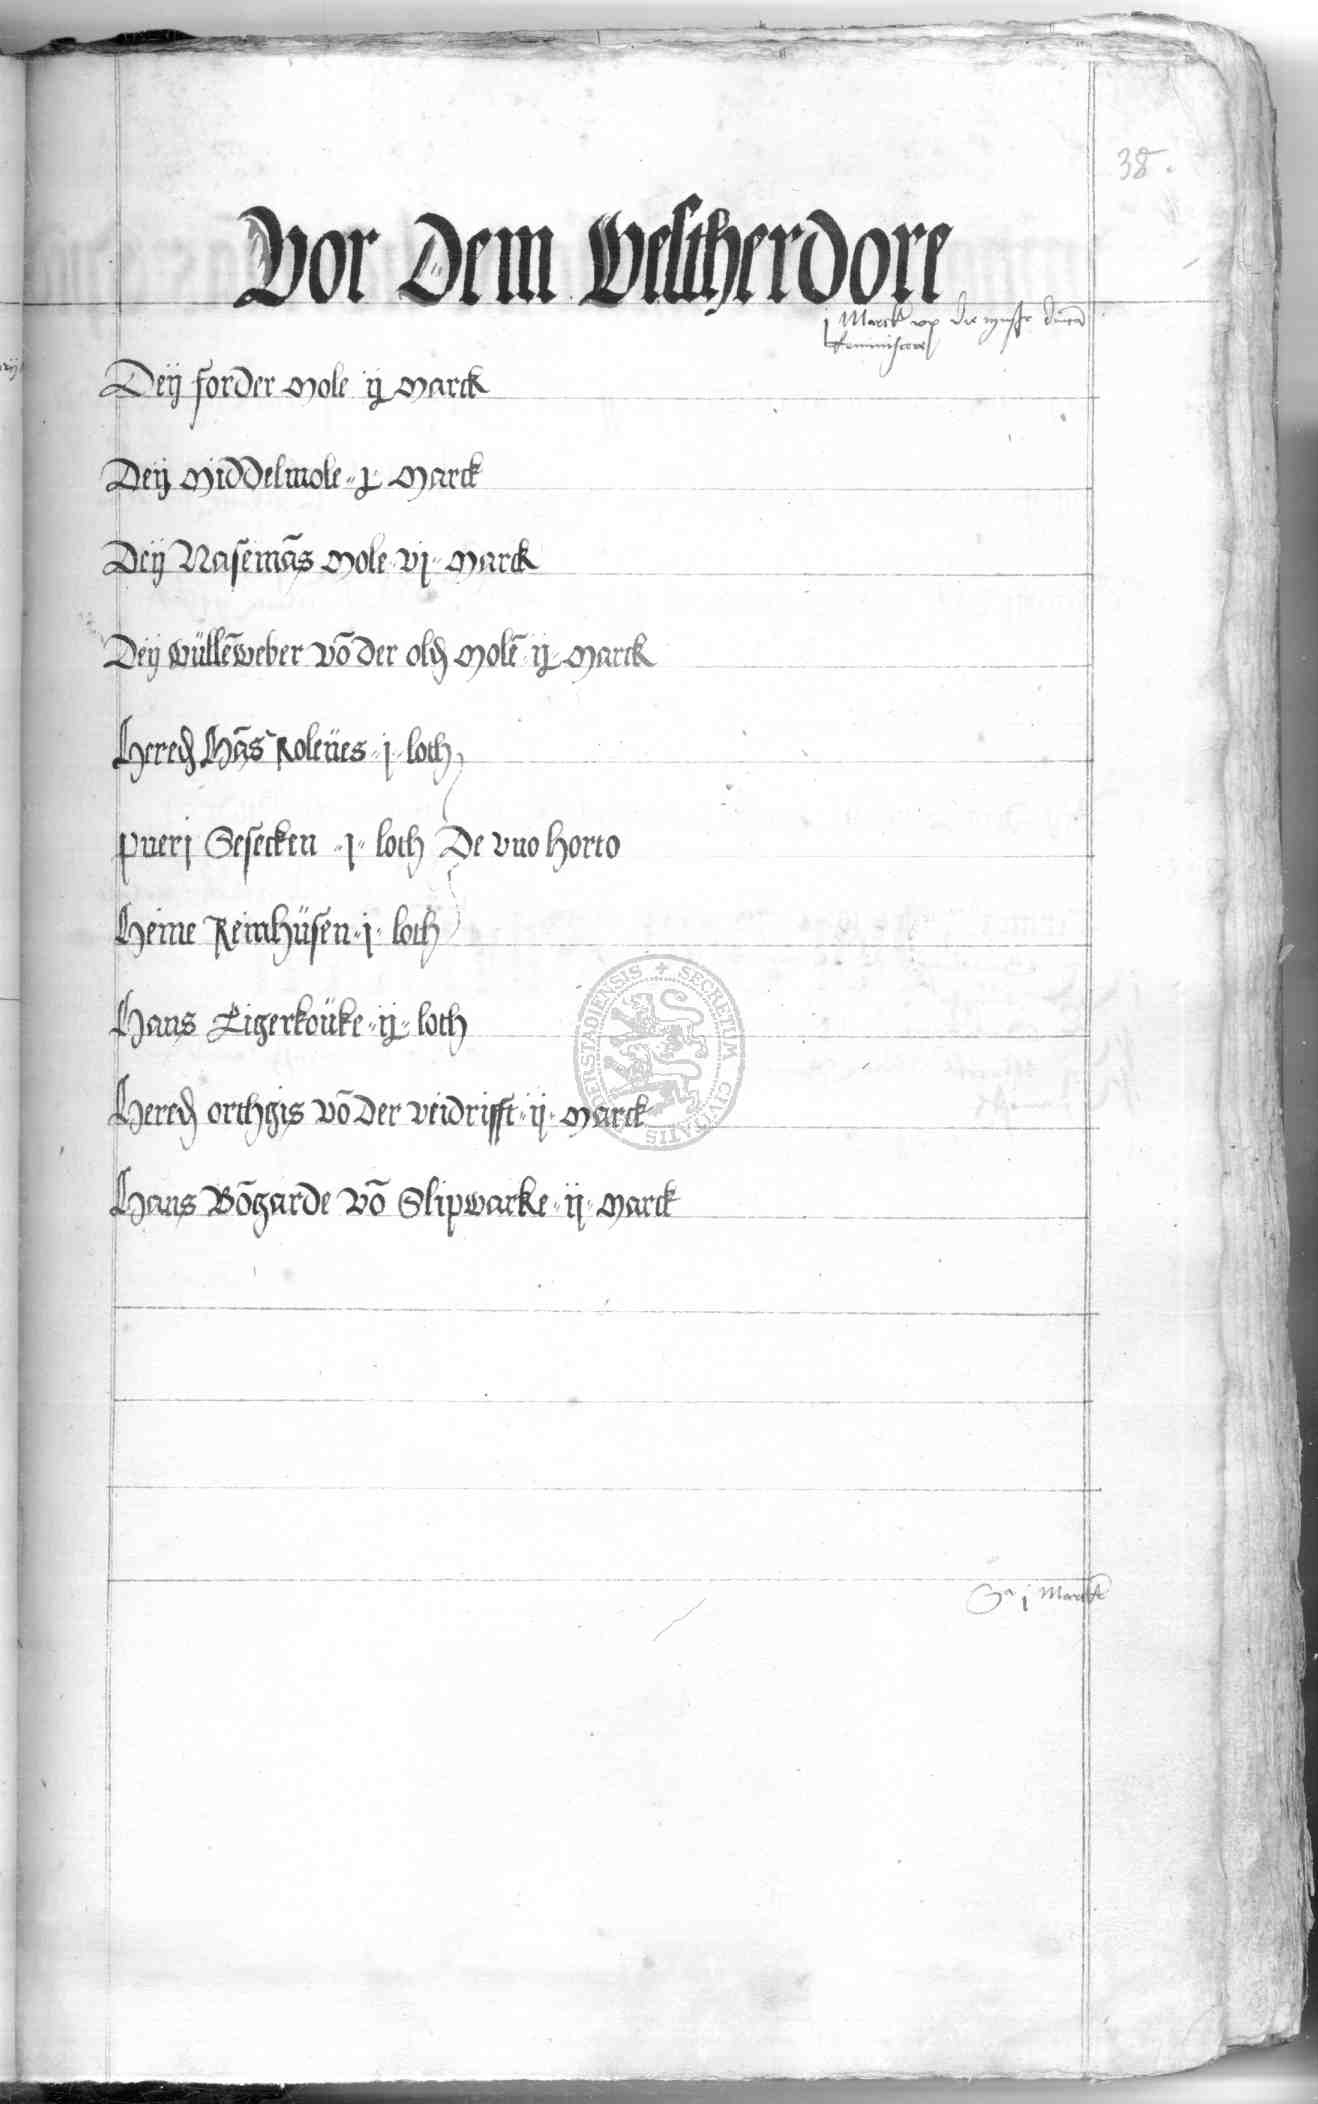 38.
Vor Dem Gelitherdore
j Marck up die
Reminiscere
Deÿ forder Mole ij Marck
Deÿ Middelmole j Marck
Deÿ Nasemās Mole vj Marck
Deÿ wüllēweber vō der old Molē ij Marck
Hered Hās Roleües j loth
pueri Sesecken j loth De vno horto
Heine Reinhüsen j loth
Hans Eigerkoüke ij loth
Hered orthgis vō der veidrifft ij Marck
Hans Bōgarde vō Slipwarke ij Marck
Sa j Marck
SECRETUM CIVITATIS